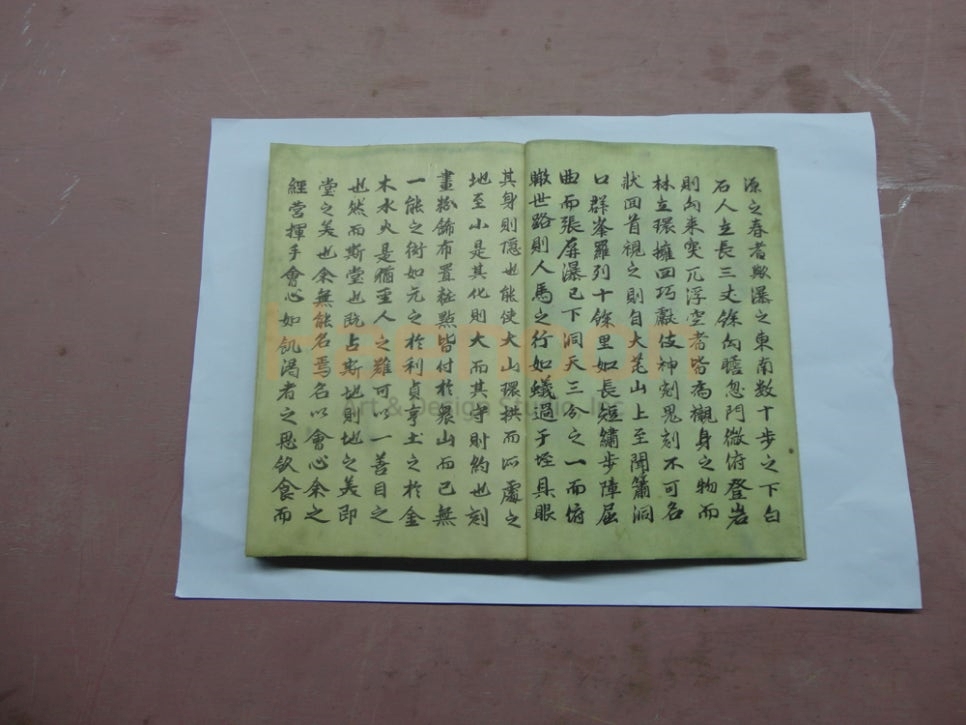 源之春者歟瀑之東南数十步之下白
石人立長三丈餘向曦忽門微俯登岩
則向来突兀浮空者皆為襯身之物而
林立環擁回巧獻伎神剜鬼刻不可名
狀回首視之則自大芚山上至聞簫洞
口群峯羅列十餘里如長短繡步障屈
曲而張屏瀑已下洞天三分之一而俯
瞰世路則人馬之行如蟻過于垤具眼
其身則隱也能使大山環拱而所處之
地至小是其化則大而其守則約也刻
畫粉餙布置粧點皆付於衆山而已無
一能之衒如元之於利貞亨土之於金
木水火是猶聖人之難可以一善目之
也然而斯堂也既占斯地則地之美即
堂之美也余無能名焉名以會心余之
經营揮手會心如飢渴者之思飲食而
Art & Design Studio, Inc